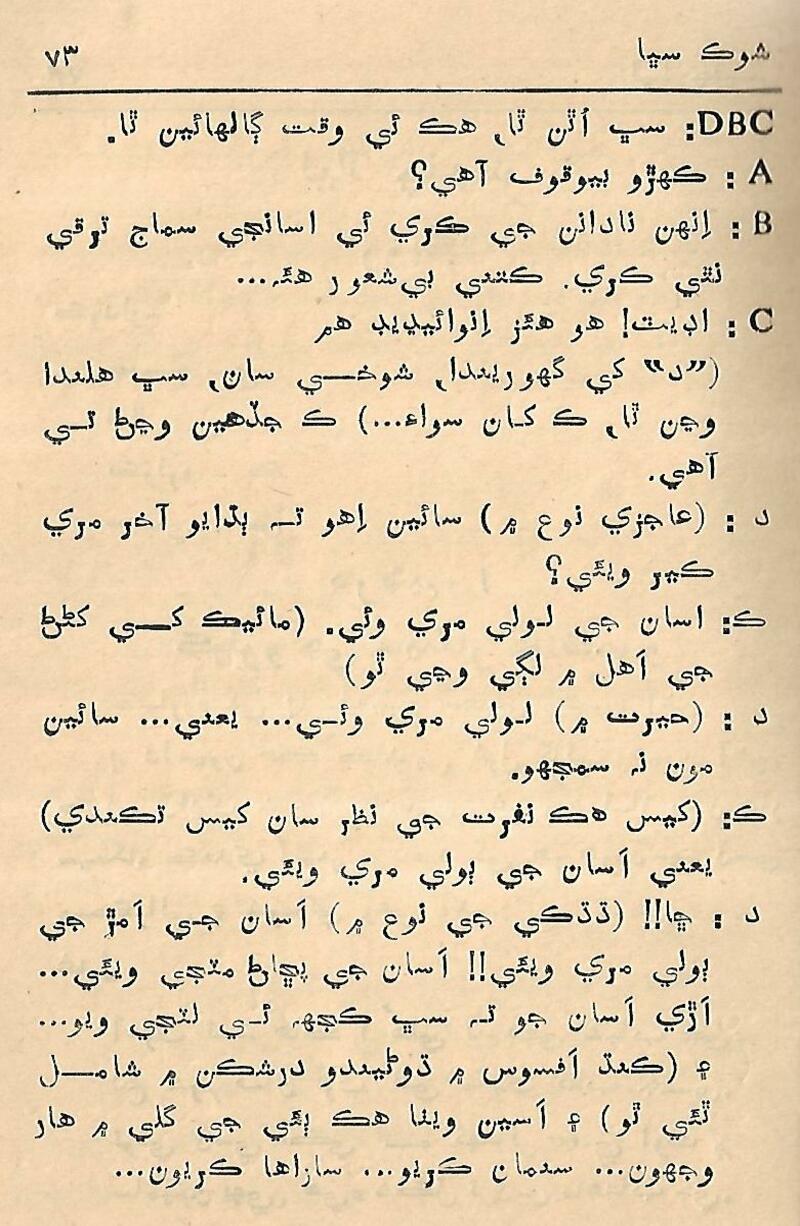 شوڪ سڀا ٧٣
DBC: سڀ اُٿن ٿا، هڪ ئي وقت ڳالهائين ٿا.
A : ڪهڙو بيوقوف آهي؟
B : اِنهن نادانن جي ڪري ئي اسانجي سماج ترقي
نٿي ڪري. ڪتني بي‌شعور هئہ...
C : اڊيٽ! هو هئز اِنوائيڊيڊ هم
(”د“ کي گھوريندا، شوخي سان، سڀ هلندا
وڃن ٿا، ڪ کان سواءِ...) ڪ جڏهين وڃڻ تي
آهي.
د : (عاجزي نوع ۾) سائين اِهو تہ ٻڌايو آخر مري
ڪير ويئي؟
ڪ: اسان جي لولي مري وئي. (مائيڪ کي کڻڻ
جي اَهل ۾ لڳي وڃي ٿو)
د : (حيرت ۾) لولي مري وئي... يعني... سائين
مون نہ سمجھو.
ڪ: (کيس هڪ نفرت جي نظر سان کيس تڪيندي)
يعني اَسان جي ٻولي مري ويئي.
د : ڇا!! (ڌڌڪي جي نوع ۾) اَسان جي اَمڙ جي
ٻولي مري ويئي!! اَسان جي پڇاڻ مٽجي ويئي...
اَڙي اَسان جو تہ سڀ ڪجھہ ئي لٽجي ويو...
۽ (ڪنڌ اَفسوس ۾ ڌوڻيندو درشڪن ۾ شامل
ٿئي ٿو) ۽ اَسين ويٺا هڪ ٻئي جي گلي ۾ هار
وجھون... سنمان ڪريو... ساراها ڪريون...